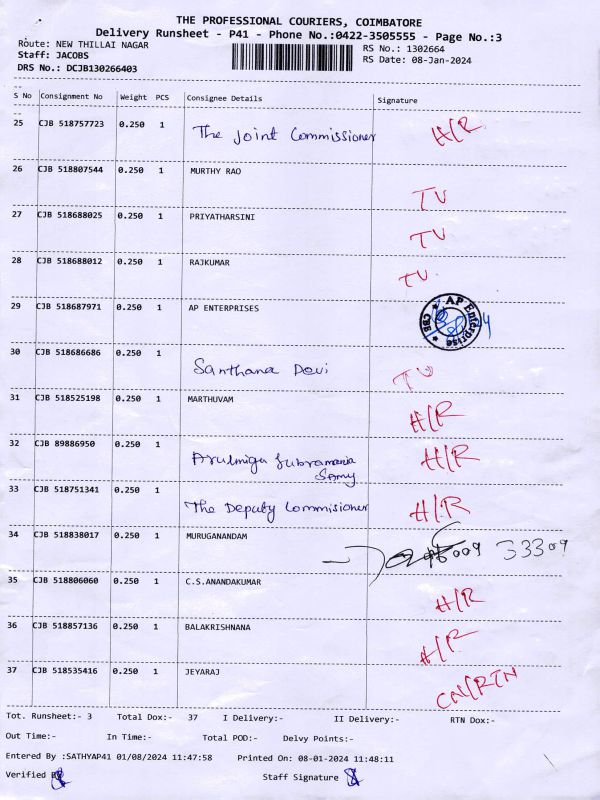 THE PROFESSIONAL COURIERS, COIMBATORE
Delivery Runsheet - P41 - Phone No.:0422-3505555 - Page No.:3
Route: NEW THILLAI NAGAR RS No.: 1302664
Staff: JACOBS RS Date: 08-Jan-2024
DRS No.: DCJB130266403
S No Consignment No Weight PCS Consignee Details Signature
25 CJB 518757723 0.250 1 The Joint Commissioner H/R
26 CJB 518807544 0.250 1 MURTHY RAO TU
27 CJB 518688025 0.250 1 PRIYATHARSINI TU
28 CJB 518688012 0.250 1 RAJKUMAR TU
29 CJB 518687971 0.250 1 AP ENTERPRISES AP Enterprise CBE
30 CJB 518686686 0.250 1 Santhana Devi TU
31 CJB 518525198 0.250 1 MARTHUVAM H/R
32 CJB 89886950 0.250 1 Arulmigu Subramania Samy H/R
33 CJB 518751341 0.250 1 The Deputy Commisioner H/R
34 CJB 518838017 0.250 1 MURUGANANDAM 33309
35 CJB 518806060 0.250 1 C.S.ANANDAKUMAR H/R
36 CJB 518857136 0.250 1 BALAKRISHNANA H/R
37 CJB 518535416 0.250 1 JEYARAJ CN/RTN
Tot. Runsheet:- 3 Total Dox:- 37 I Delivery:- II Delivery:- RTN Dox:-
Out Time:- In Time:- Total POD:- Delvy Points:-
Entered By :SATHYAP41 01/08/2024 11:47:58 Printed On: 08-01-2024 11:48:11
Verified By Staff Signature